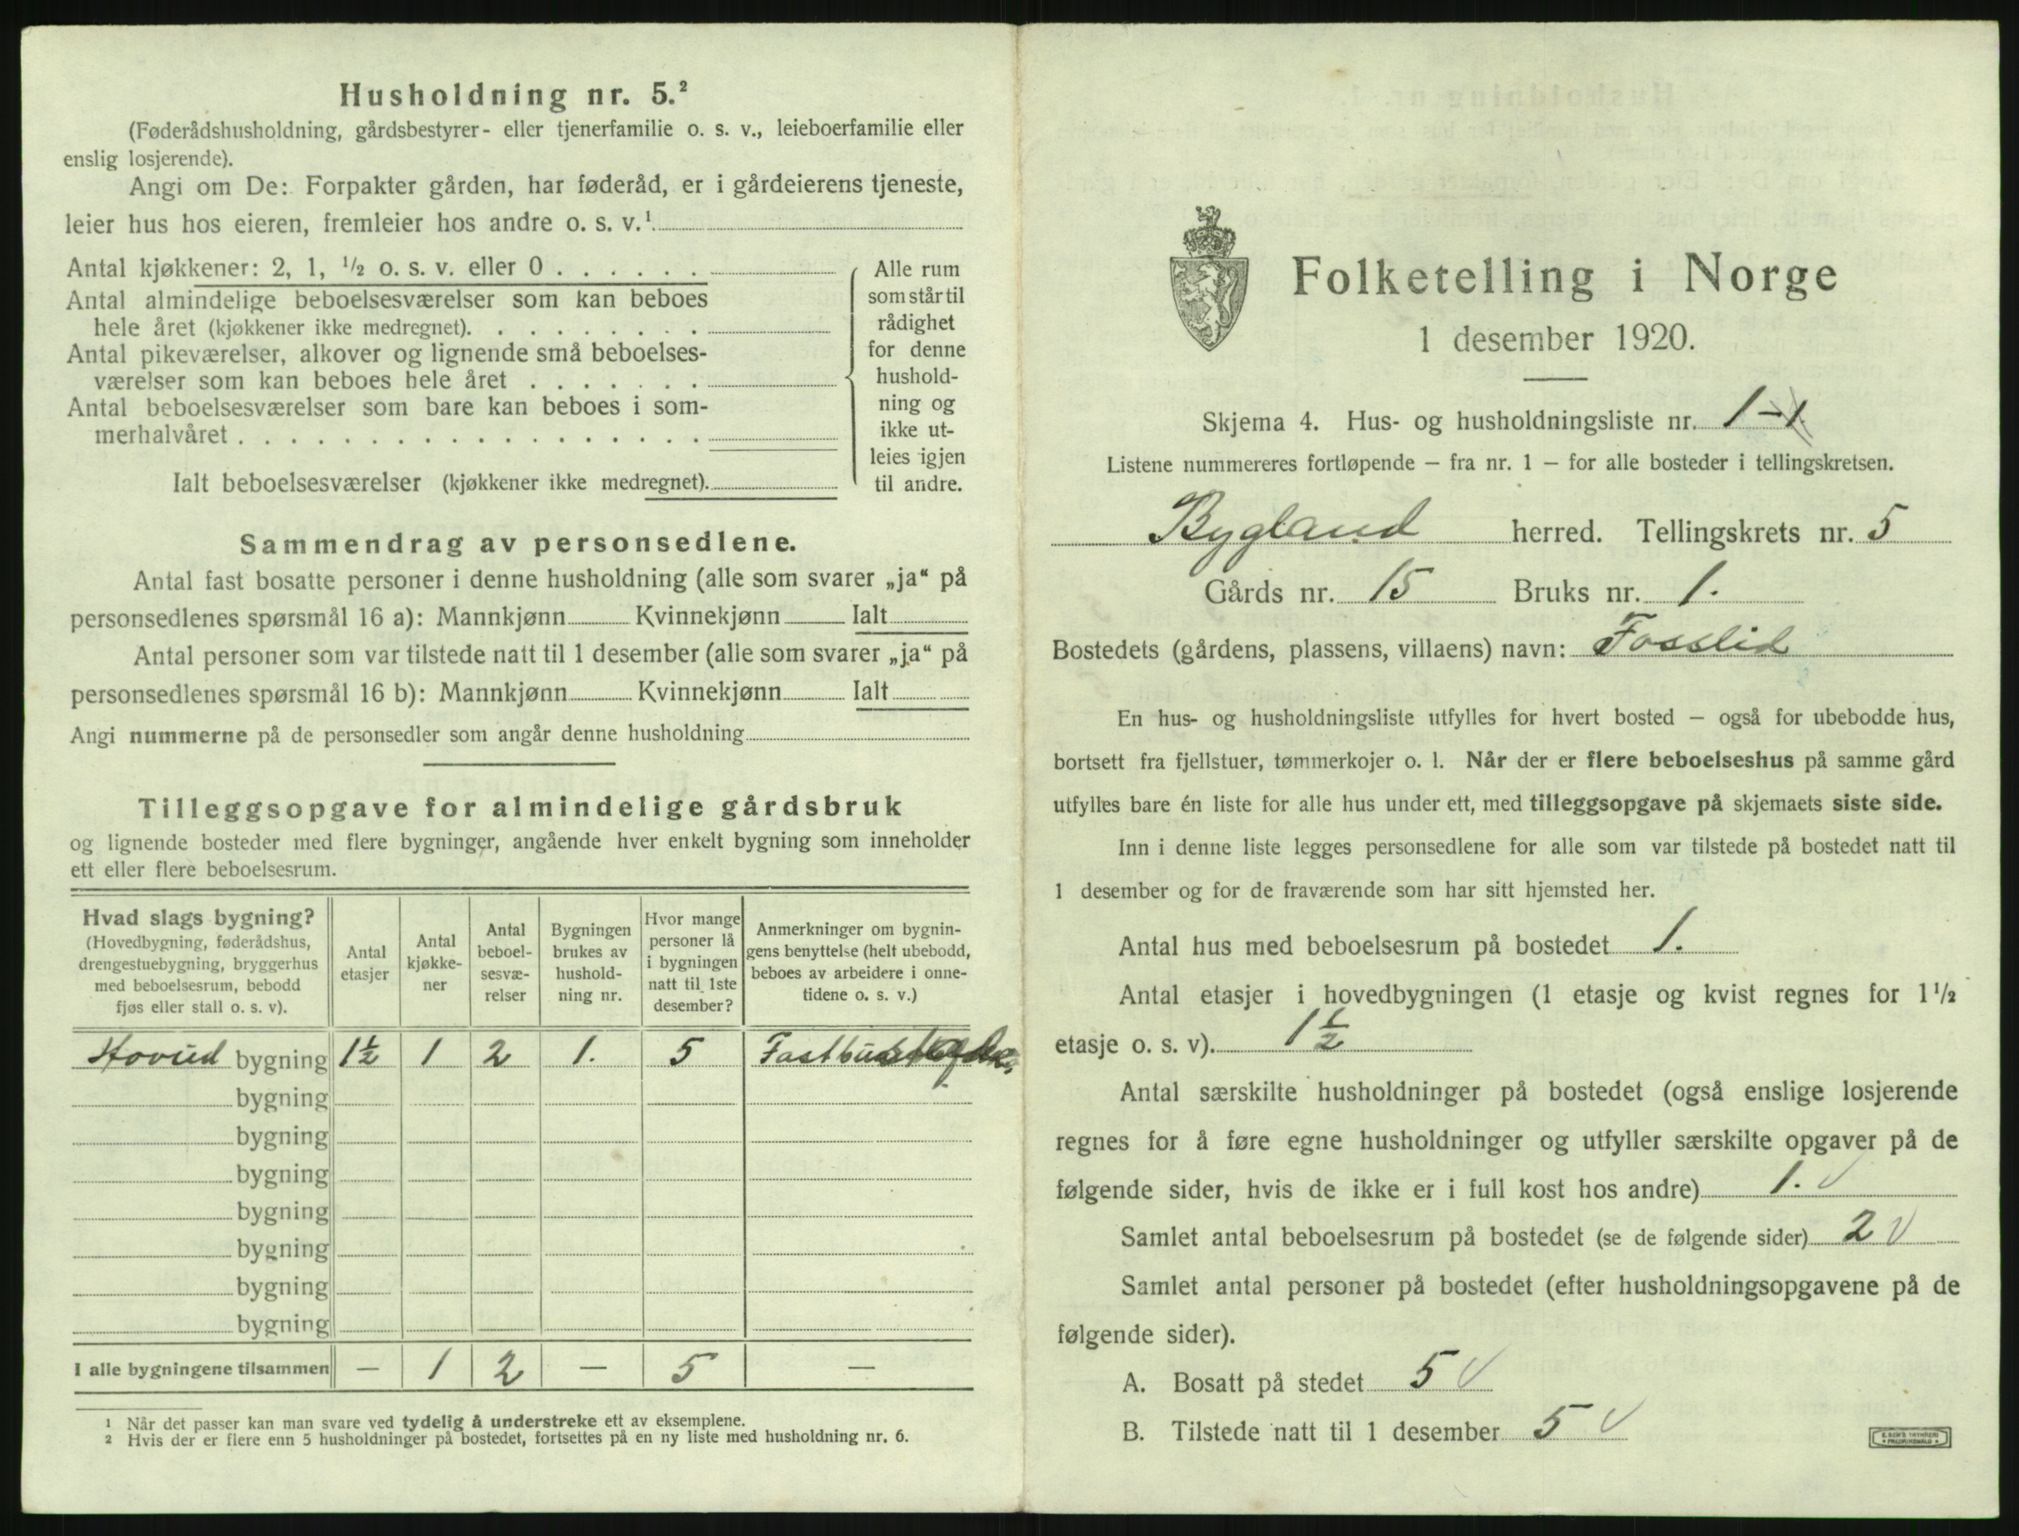 Husholdning nr. 5.²
(Føderådshusholdning, gårdsbestyrer- eller tjenerfamilie o. s. v., leieboerfamilie eller
enslig losjerende).
Angi om De: Forpakter gården, har føderåd, er i gårdeierens tjeneste,
leier hus hos eieren, fremleier hos andre o. s. v.¹
Antal kjøkkener: 2, 1, ½ o. s. v. eller 0
Antal almindelige beboelsesværelser som kan beboes
hele året (kjøkkener ikke medregnet).
Antal pikeværelser, alkover og lignende små beboelses-
værelser som kan beboes hele året
Antal beboelsesværelser som bare kan beboes i som-
merhalvåret
Ialt beboelsesværelser (kjøkkener ikke medregnet).
Alle rum
som står til
rådighet
for denne
hushold-
ning og
ikke ut-
leies igjen
til andre.
Sammendrag av personsedlene.
Antal fast bosatte personer i denne husholdning (alle som svarer „ja“ på
personsedlenes spørsmål 16 a): Mannkjønn Kvinnekjønn Ialt
Antal personer som var tilstede natt til 1 desember (alle som svarer „ja“ på
personsedlenes spørsmål 16 b): Mannkjønn Kvinnekjønn Ialt
Angi nummerne på de personsedler som angår denne husholdning
Tilleggsopgave for almindelige gårdsbruk
og lignende bosteder med flere bygninger, angående hver enkelt bygning som inneholder
ett eller flere beboelsesrum.
Hvad slags bygning?
(Hovedbygning, føderådshus,
drengestuebygning, bryggerhus
med beboelsesrum, bebodd
fjøs eller stall o. s. v).
Antal
etasjer
Antal
kjøkke-
ner
Antal
beboel-
sesvæ-
relser
Bygningen
brukes av
hushold-
ning nr.
Hvor mange
personer lå
i bygningen
natt til 1ste
desember?
Anmerkninger om bygnin-
gens benyttelse (helt ubebodd,
beboes av arbeidere i onne-
tidene o. s. v.)
Hovud bygning 1½ 1 2 1. 5
bygning
bygning
bygning
bygning
bygning
bygning
bygning
I alle bygningene tilsammen — 1 2 — 5 —
¹ Når det passer kan man svare ved tydelig å understreke ett av eksemplene.
² Hvis der er flere enn 5 husholdninger på bostedet, fortsettes på en ny liste med husholdning nr. 6.
Folketelling i Norge
1 desember 1920.
Skjema 4. Hus- og husholdningsliste nr. 1-1
Listene nummereres fortløpende – fra nr. 1 – for alle bosteder i tellingskretsen.
Bygland herred. Tellingskrets nr. 5
Gårds nr. 15 Bruks nr. 1.
Bostedets (gårdens, plassens, villaens) navn: Fosslid
En hus- og husholdningsliste utfylles for hvert bosted – også for ubebodde hus,
bortsett fra fjellstuer, tømmerkojer o. l. Når der er flere beboelseshus på samme gård
utfylles bare én liste for alle hus under ett, med tilleggsopgave på skjemaets siste side.
Inn i denne liste legges personsedlene for alle som var tilstede på bostedet natt til
1 desember og for de fraværende som har sitt hjemsted her.
Antal hus med beboelsesrum på bostedet 1.
Antal etasjer i hovedbygningen (1 etasje og kvist regnes for 1½
etasje o. s. v). 1½
Antal særskilte husholdninger på bostedet (også enslige losjerende
regnes for å føre egne husholdninger og utfyller særskilte opgaver på de
følgende sider, hvis de ikke er i full kost hos andre) 1.
Samlet antal beboelsesrum på bostedet (se de følgende sider) 2
Samlet antal personer på bostedet (efter husholdningsopgavene på de
følgende sider).
A. Bosatt på stedet 5
B. Tilstede natt til 1 desember 5